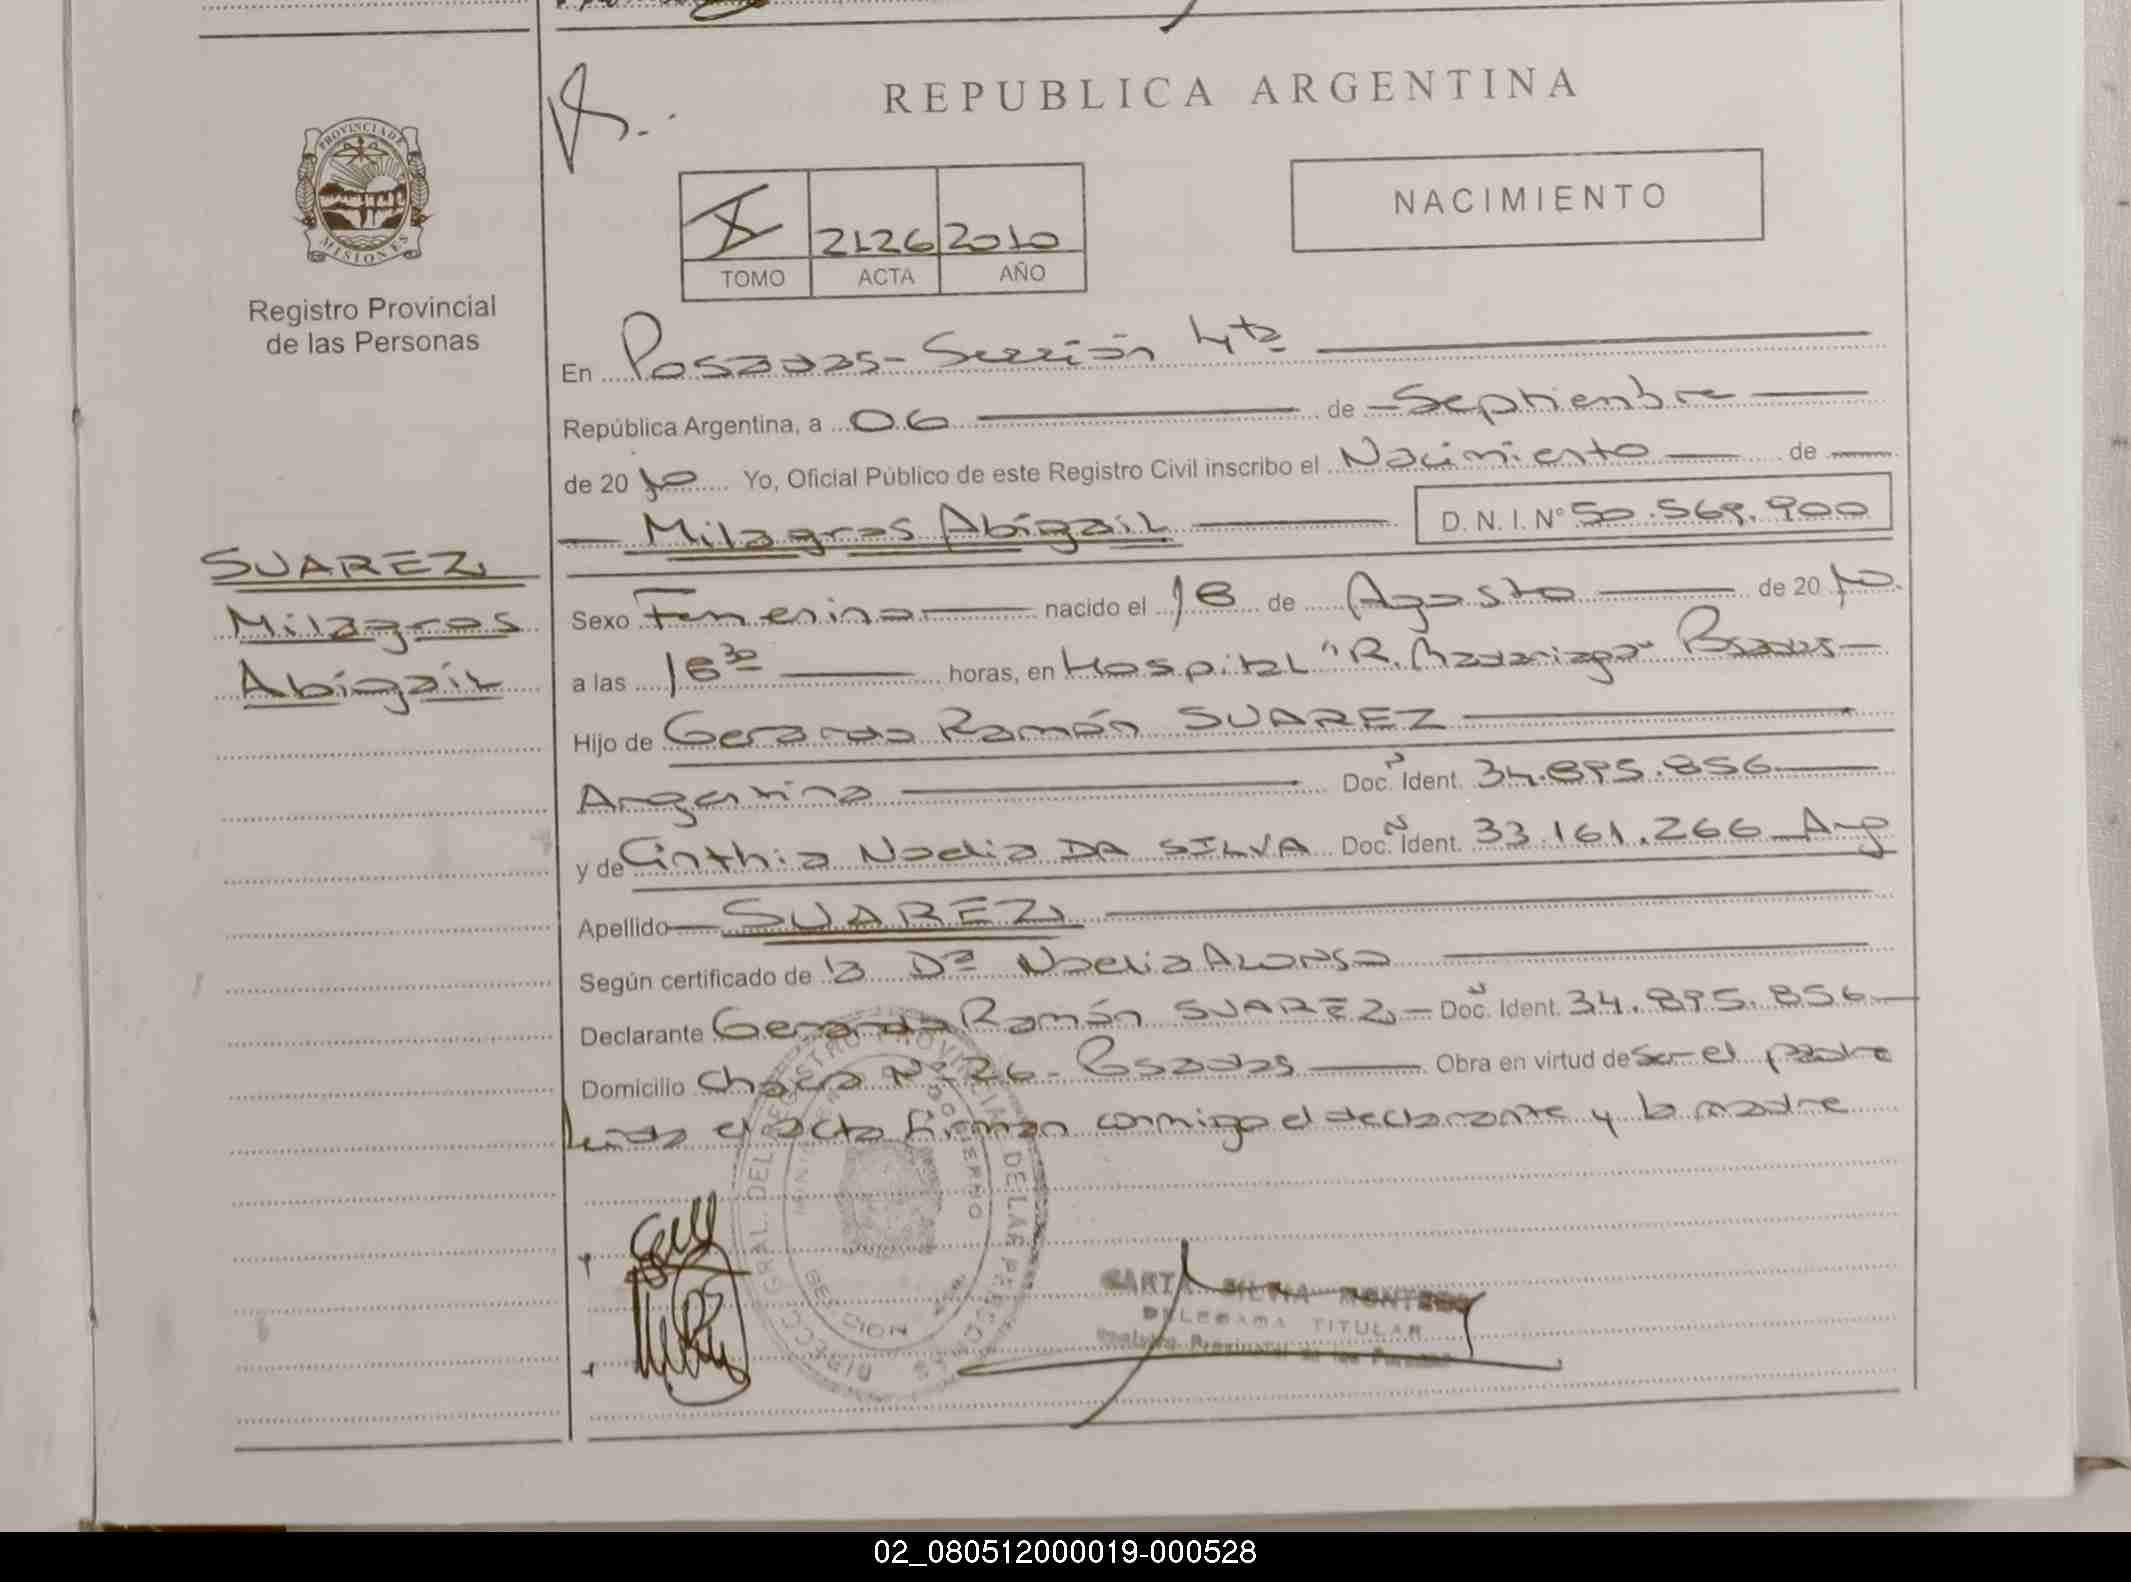 REPUBLICA ARGENTINA
PROVINCIA DE
MISIONES
Registro Provincial
de las Personas
2126 2010
TOMO ACTA AÑO
NACIMIENTO
En Posadas - Sección 4ta
República Argentina, a 06 de Septiembre
de 2010 Yo, Oficial Público de este Registro Civil inscribo el Nacimiento de
Milagros Abigail D. N. I. N° 50.569.900
SUAREZ,
Milagros
Abigail
Sexo Femenino nacido el 18 de Agosto de 2010.
a las 16 30 horas, en Hospital "R. Madariaga" Posadas
Hijo de Gerardo Ramón SUAREZ
Argentino Doc. Ident. 34.895.856
y de Cinthia Nadia DA SILVA Doc. Ident. 33.161.266 Arg
Apellido SUAREZ,
Según certificado de la Dra Noelia Alonso
Declarante Gerardo Ramón SUAREZ, Doc. Ident. 34.895.856
Domicilio Chacra N° 26 - Posadas Obra en virtud de Ser el padre
Leída el acta firman conmigo el declarante y la madre
SILVIA MONTERO
DELEGADA TITULAR
Registro Provincial de las Personas
02_080512000019-000528